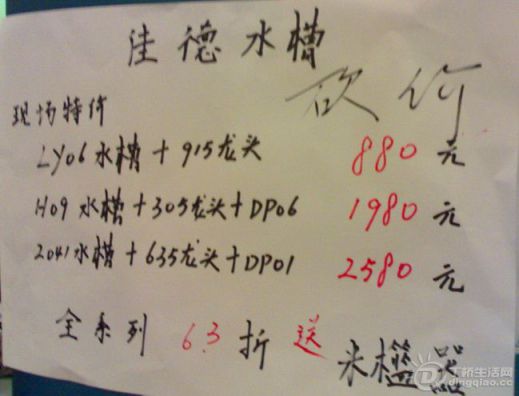 佳德水槽
砍价
现场特价
LY06水槽+915龙头 880元
H09水槽+305龙头+DP06 1980元
2041水槽+635龙头+DP01 2580元
全系列 6.3折 送 米桶器
丁桥生活网
dingqiao.cc